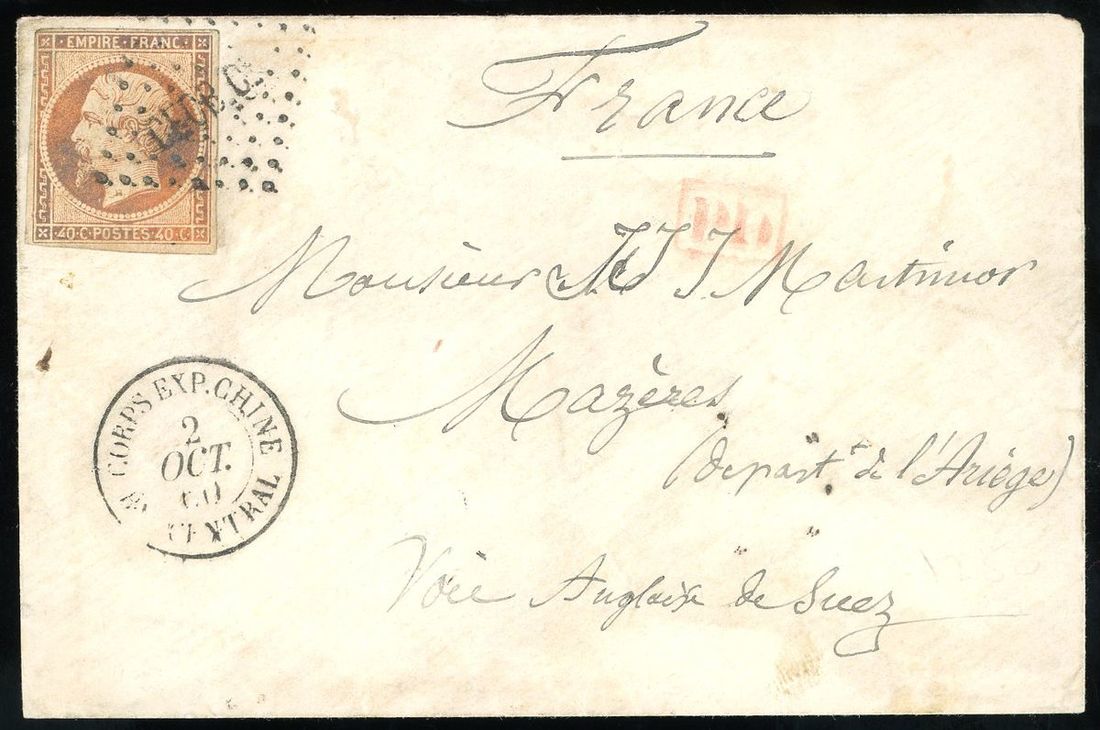 EMPIRE · FRANC ·
40 · C · POSTES · 40 · C
France
P.D.
Monsieur J Martimor
Mazères
(départ.t de l'Ariège)
CORPS EXP. CHINE
2
OCT.
60
CENTRAL
Voie Anglaise de Suez